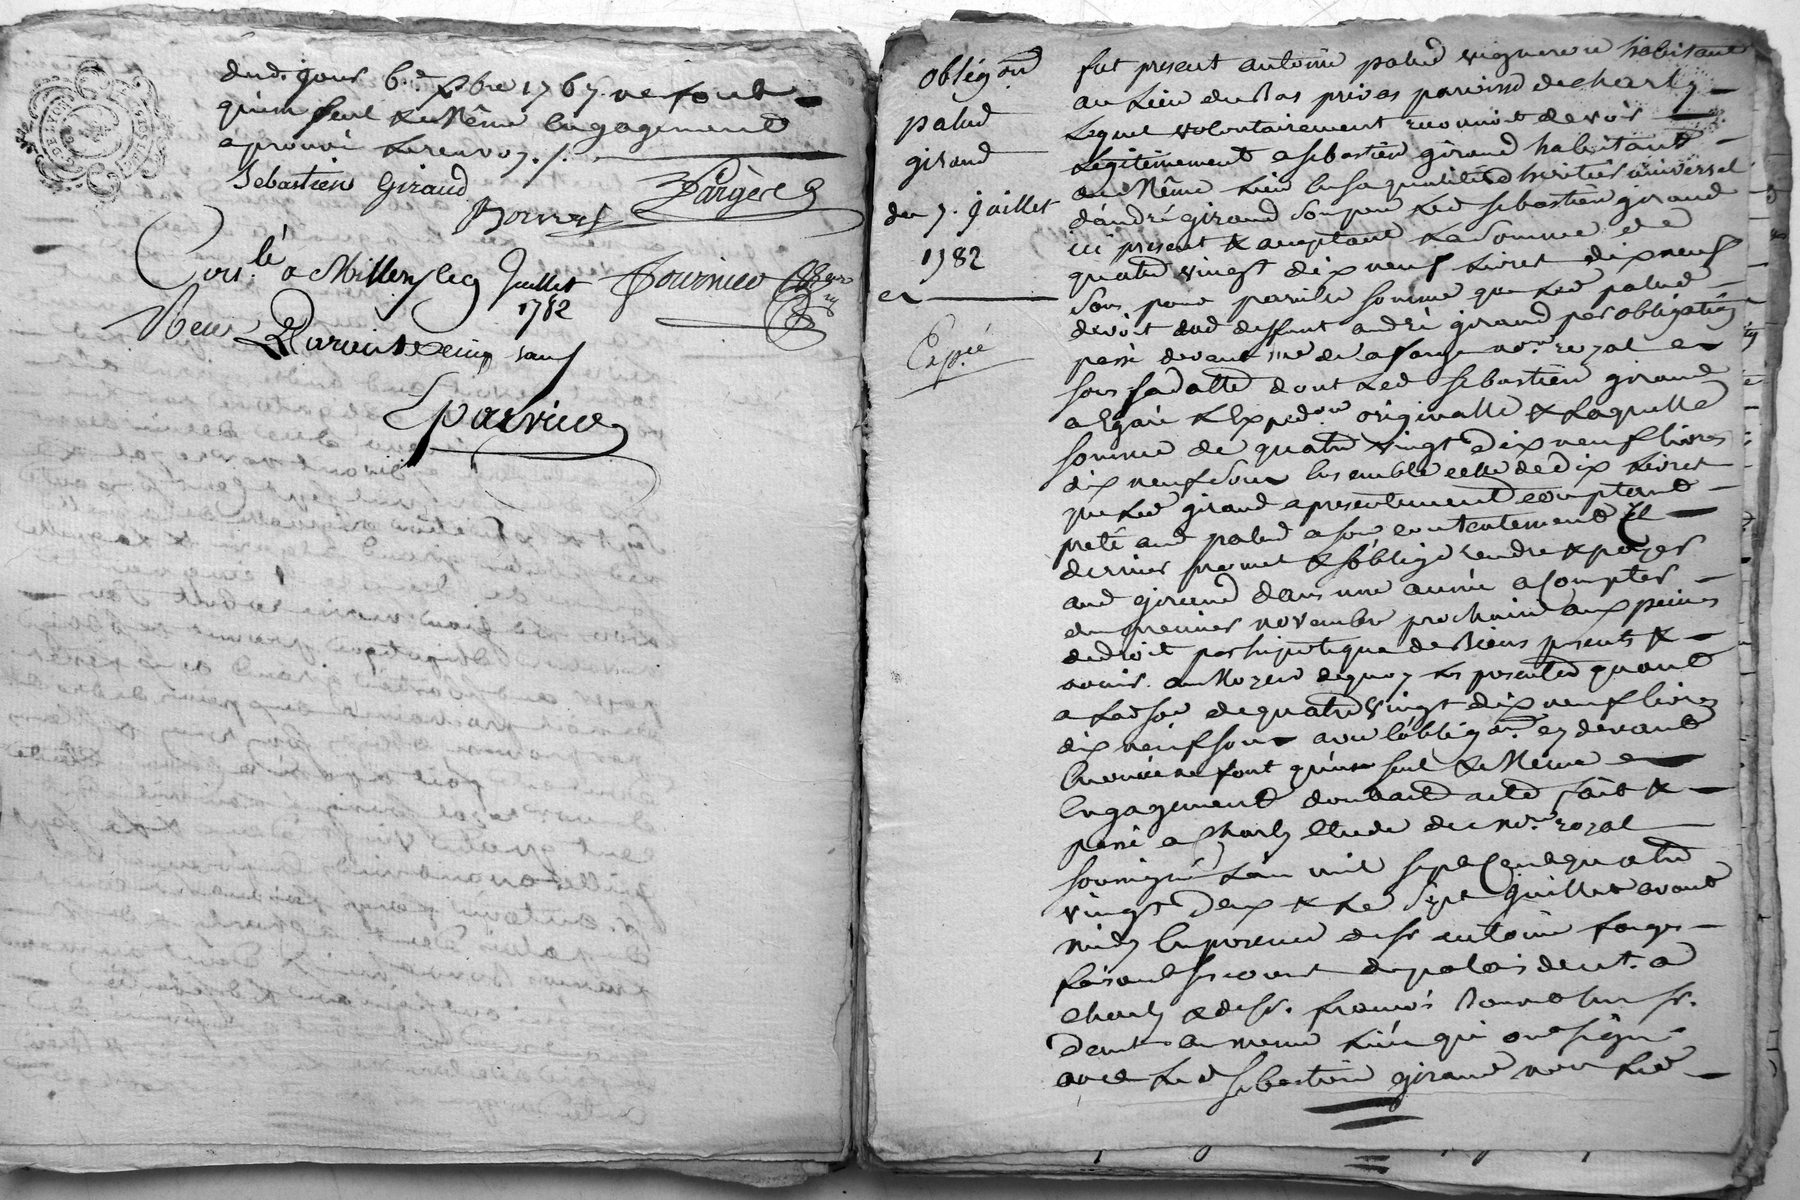 dud. jour 6.e xbre 1767. ne font
qu'un seul & même engagement
aprouvé le renvoy ./.
Sebastien Giraud
Fargère
Bonners
Con.lé a Millery le 9 Juillet
1782
Fournier
Recu quinze sous
Oblégon
palud
giraud
du 7. juillet
1782
Expié
fut present antoine palud vigneron habitant
au lieu du Bas privas paroisse de charly
Lequel volontairement reconnoit devoir
Légitimement a sebastien giraud habitant
au Même Lieu en sa qualité d'héritier universel
d'andré giraud son pere led sebastien giraud
ici present & acceptant La somme de
quatre vingt dix neuf Livres dix neuf
sous pour pareille somme que Led palud
devoit aud deffunt andré giraud par obligation
passé devant me de la farge nore. royal
sous sa datte dont Led sebastien giraud
a Egaré L'Expedon originalle & Laquelle
somme de quatre vingt dix neuf livres
dix neuf sous Ensemble celle de dix Livres
que Led giraud a presentement comptant
preté aud palud a son contentement Ce
dernier promet & s'oblige rendre & payer
aud giraud dans une année a compter
du premier novembre prochain aux peines
de droit par hipotéque de Biens presents &
avenir. au Moyen de quoy les presentes quant
a lad so.e de quatre vingt dix neuf livres
dix neuf sous avec l'oblig.on cy devant
Enoncée ne font qu'un seul & Même
Engagement dont acte fait &
passé a Charly Etude du nore royal
soussigné L'an mil sept Cent quatre
vingt deux & Le Sept Juillet avant
midy En presence de sr antoine farges
de palais demt. a
Charly & de sr. françois
demt au meme Lieu qui ont signé
avec Led sebastien giraud non Led